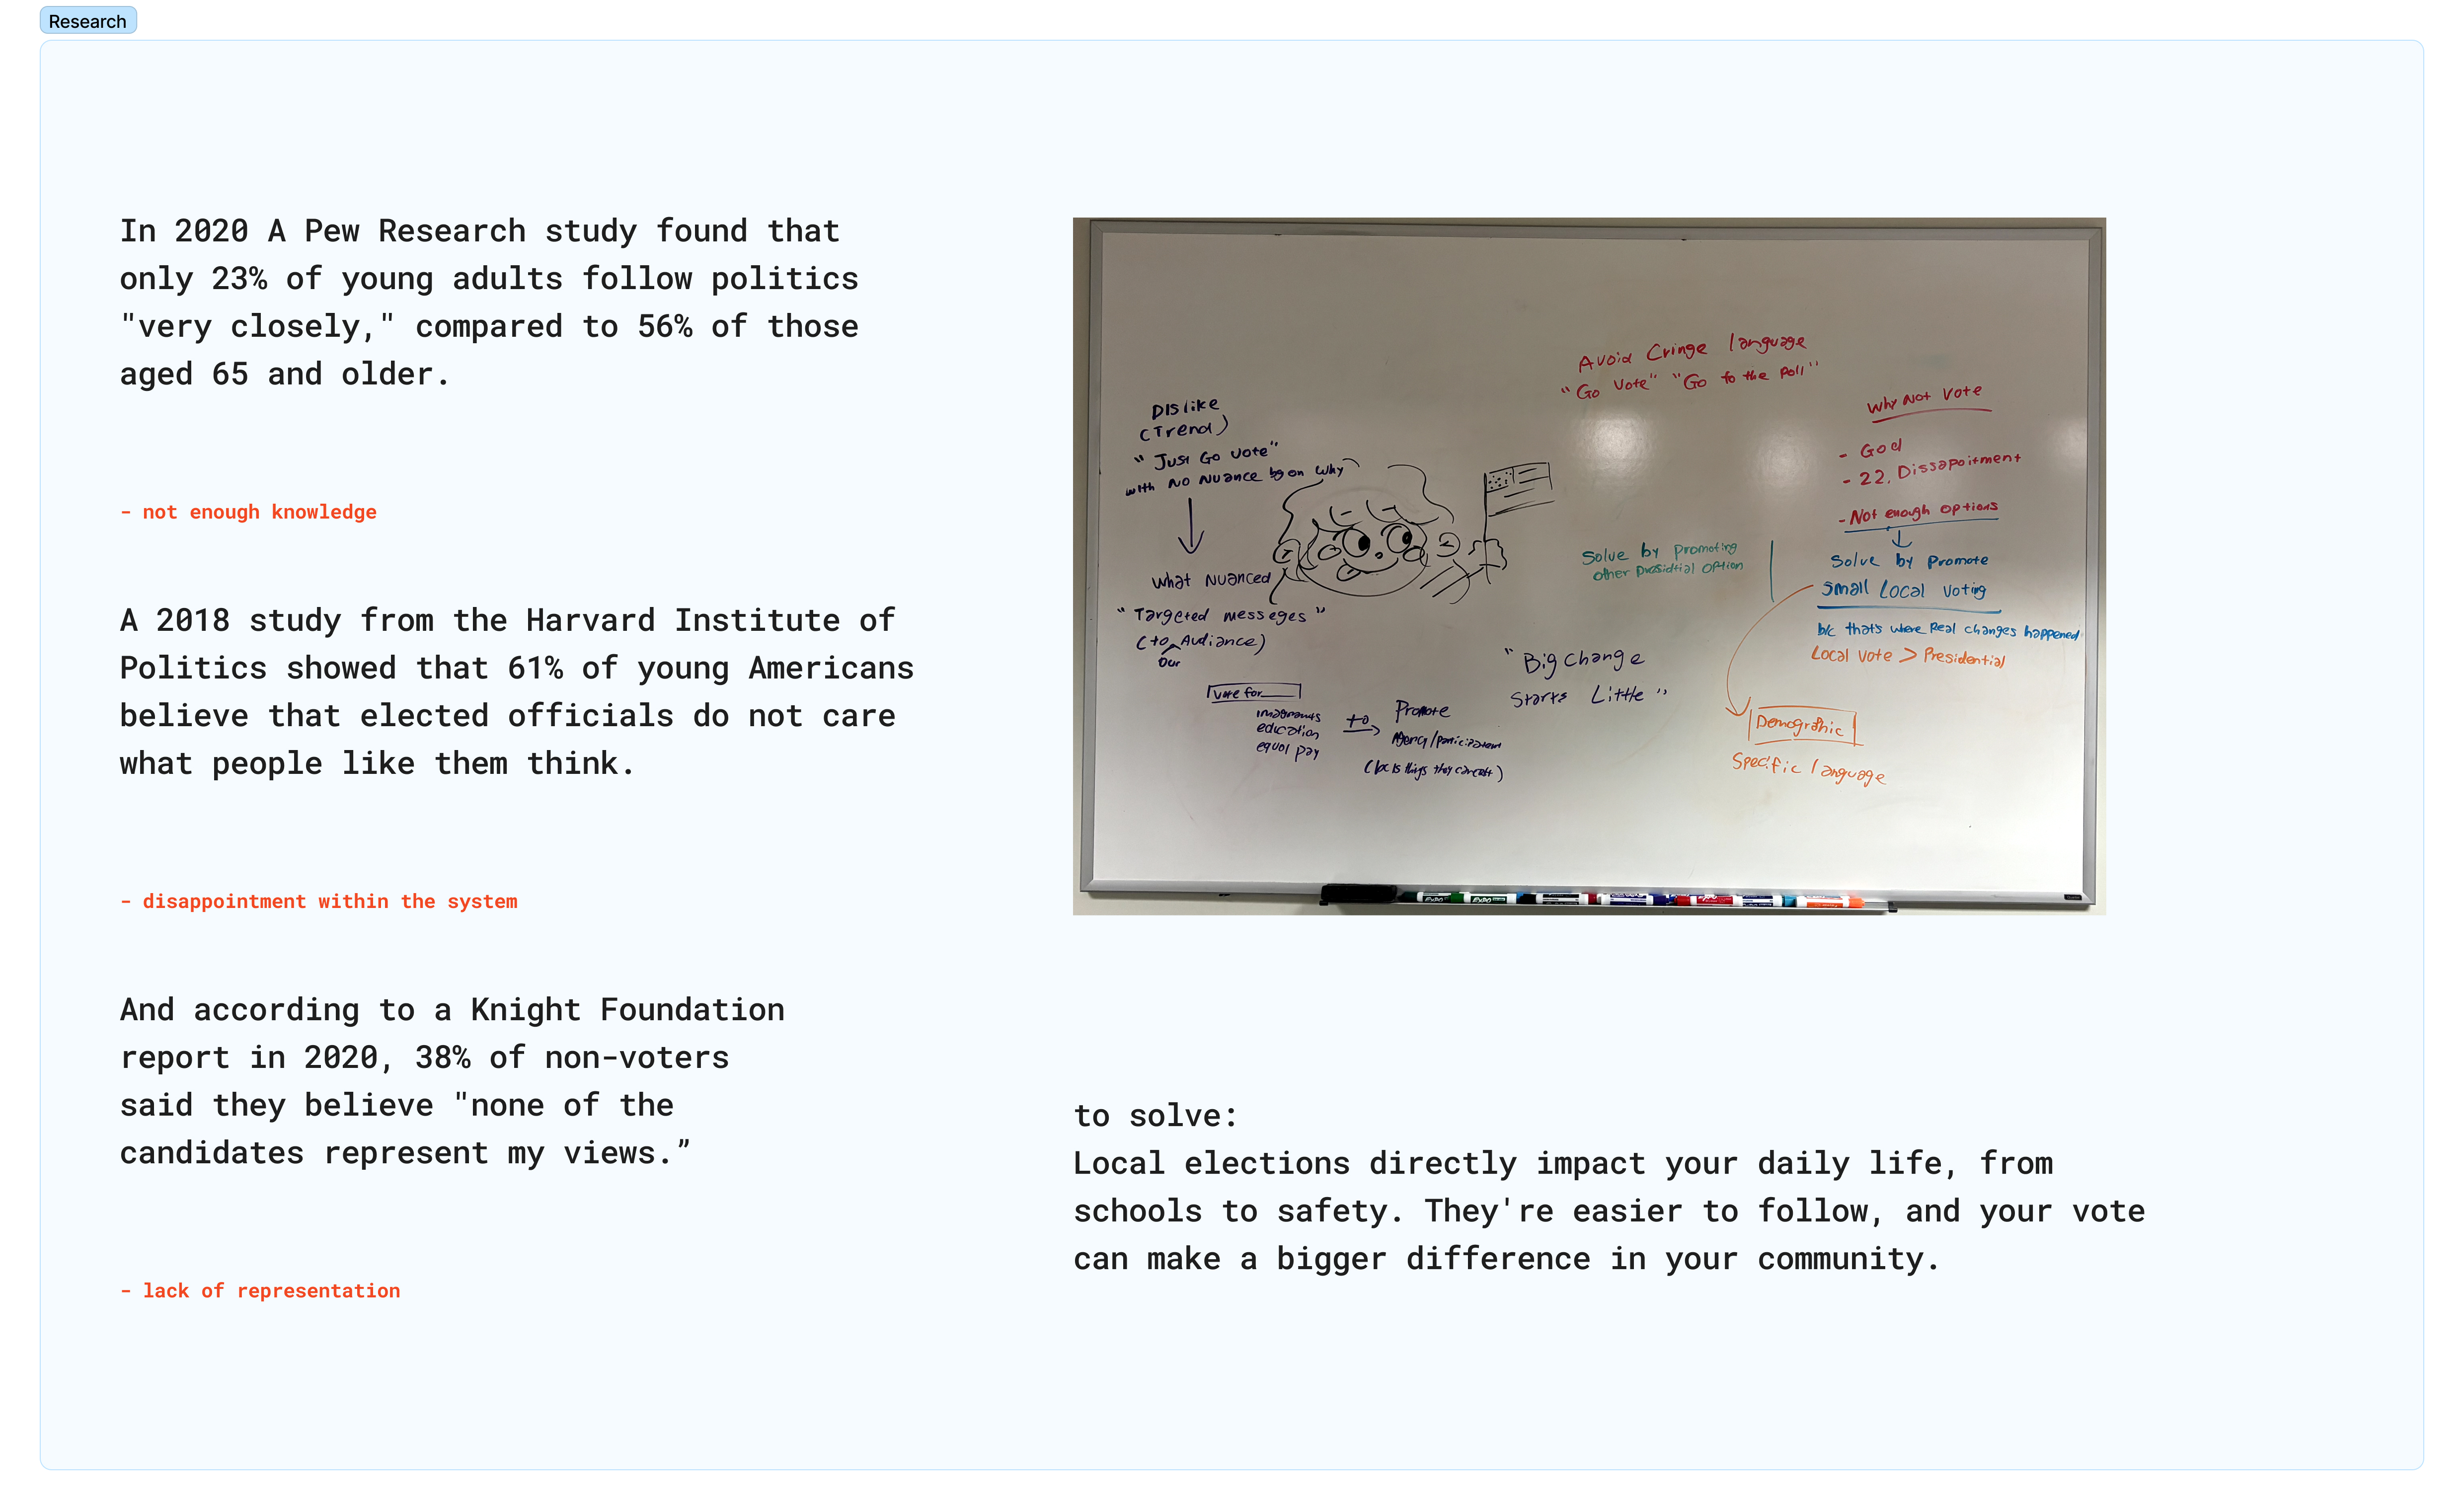 Research
In 2020 A Pew Research study found that
only 23% of young adults follow politics
"very closely," compared to 56% of those
aged 65 and older.
- not enough knowledge
A 2018 study from the Harvard Institute of
Politics showed that 61% of young Americans
believe that elected officials do not care
what people like them think.
- disappointment within the system
And according to a Knight Foundation
report in 2020, 38% of non-voters
said they believe "none of the
candidates represent my views.”
- lack of representation
DISlike
(Trend)
"Just Go Vote"
with No Nuance on Why
What Nuanced
"Targeted messeges"
(to Our Audience)
Vote for
education
equal pay
to
Promote
"Big change
Starts Little"
Avoid Cringe language
"Go Vote" "Go to the Poll"
Solve by promoting
other option
Why Not Vote
- God
- 22. Dissapoitment
- Not enough options
Solve by Promote
Small Local Voting
b/c that's where Real changes happened
Local Vote > Presidential
Demographic
Specific language
EXPO
EXPO
to solve:
Local elections directly impact your daily life, from
schools to safety. They're easier to follow, and your vote
can make a bigger difference in your community.